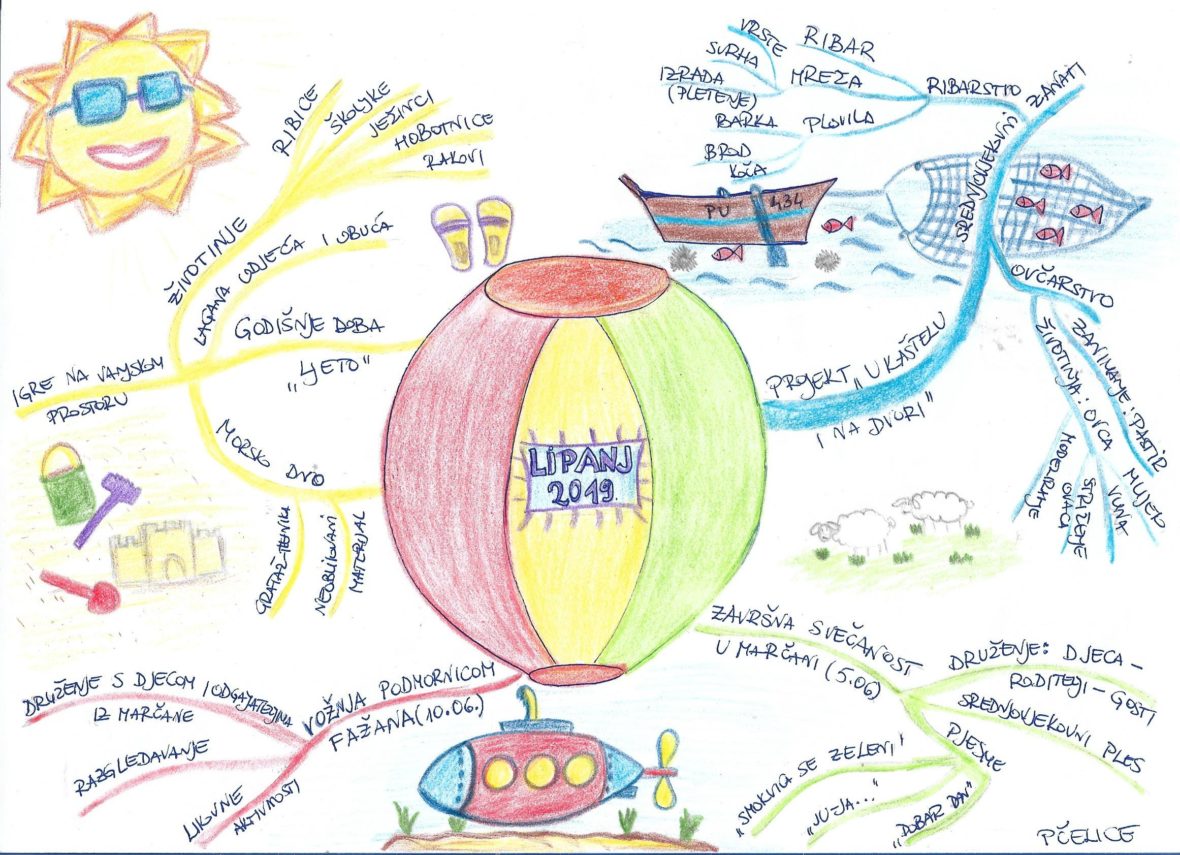 LIPANJ
2019.
GODIŠNJE DOBA
„LJETO"
ŽIVOTINJE
RIBICE
ŠKOLJKE
JEŽINCI
HOBOTNICE
RAKOVI
LAGANA ODJEĆA I OBUĆA
IGRE NA VANJSKOM
PROSTORU
MORSKO DNO
GRATAŽ-TEHNIKA
NEOBLIKOVANI
MATERIJAL
PROJEKT „U KAŠTELU
I NA DVORI"
SREDNJOVJEKOVNI ZANATI
RIBARSTVO
RIBAR
MREŽA
VRSTE
SVRHA
IZRADA
(PLETENJE)
PLOVILA
BARKA
BROD
KOČA
PU 434
OVČARSTVO
ZANIMANJE: PASTIR
ŽIVOTINJA: OVCA
MLIJEKO
VUNA
STRIŽENJE
OVACA
MODELIRANJE
ZAVRŠNA SVEČANOST
U MARČANI (5.06)
DRUŽENJE: DJECA –
RODITELJI – GOSTI
SREDNJOVJEKOVNI PLES
PJESME
„SMOKVICA SE ZELENI"
„JU-JA..."
„DOBAR DAN"
VOŽNJA PODMORNICOM
FAŽANA (10.06.)
DRUŽENJE S DJECOM I ODGAJATELJIMA
IZ MARČANE
RAZGLEDAVANJE
LIKOVNE
AKTIVNOSTI
PČELICE